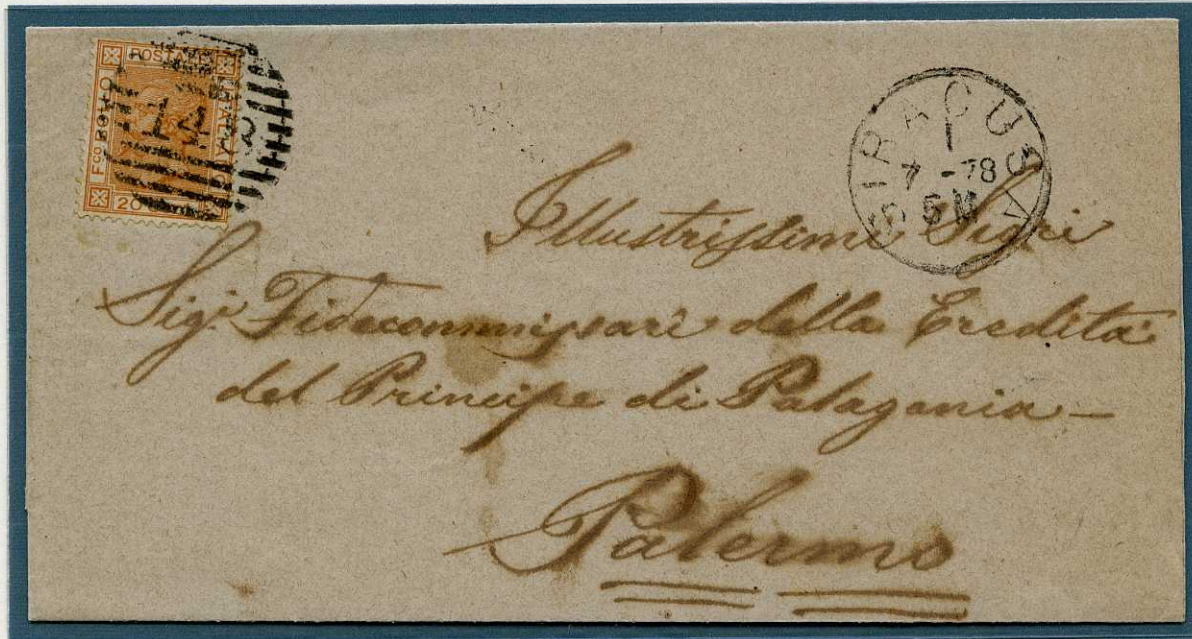 POSTA
Fco BOLLO
20
148
SIRACUSA
1
7 -78
5 M
Illustrissimi Sigri
Sigi Fidecommissari della Eredità
del Principe di Palagonia
Palermo